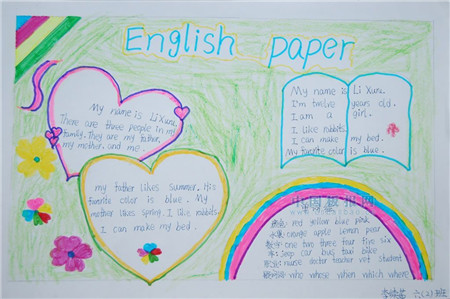 English paper
My name is Li Xuru.
There are three people in my
family. They are my father,
my mother, and me.
my father likes Summer. His
favorite color is blue. My
mother likes spring. I like rabbits.
I can make my bed.
My name is Li Xuru.
I'm twelve years old.
I am a girl.
I like rabbits.
I can make my bed.
My favorite color is blue.
red yellow blue pink
水果: orange apple lemon pear
数字: one two three four five six
jeep car bus taxi bike
nurse doctor teacher vet student
who whose when which where
六(2)班